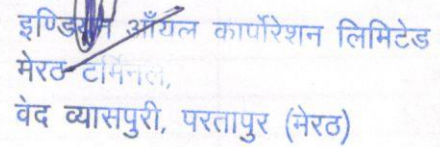 इण्डियन ऑयल कार्पोरेशन लिमिटेड
मेरठ टर्मिनल,
वेद व्यासपुरी, परतापुर (मेरठ)